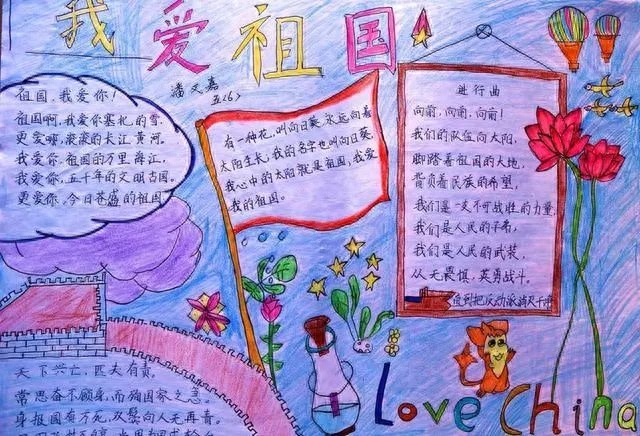 我爱祖国
潘文嘉
五(6)
祖国,我爱你!
祖国啊,我爱你塞北的雪,
更爱哪,滚滚的长江黄河。
我爱你,祖国的万里海江,
我爱你,五千年的文明古国。
更爱你,今日苍盛的祖国
有一种花,叫向日葵,永远向着
太阳生长,我的名字也叫向日葵,
我心中的太阳就是祖国,我爱
我的祖国。
进行曲
向前,向前,向前!
我们的队伍向太阳,
脚踏着祖国的大地,
背负着民族的希望,
我们是一支不可战胜的力量,
我们是人民的子弟,
我们是人民的武装,
从无畏惧,英勇战斗。
直到把反动派消灭干净
天下兴亡,匹夫有责。
常思奋不顾身,而殉国家之急。
身报国有万死,双鬓向人无再青。
Love China